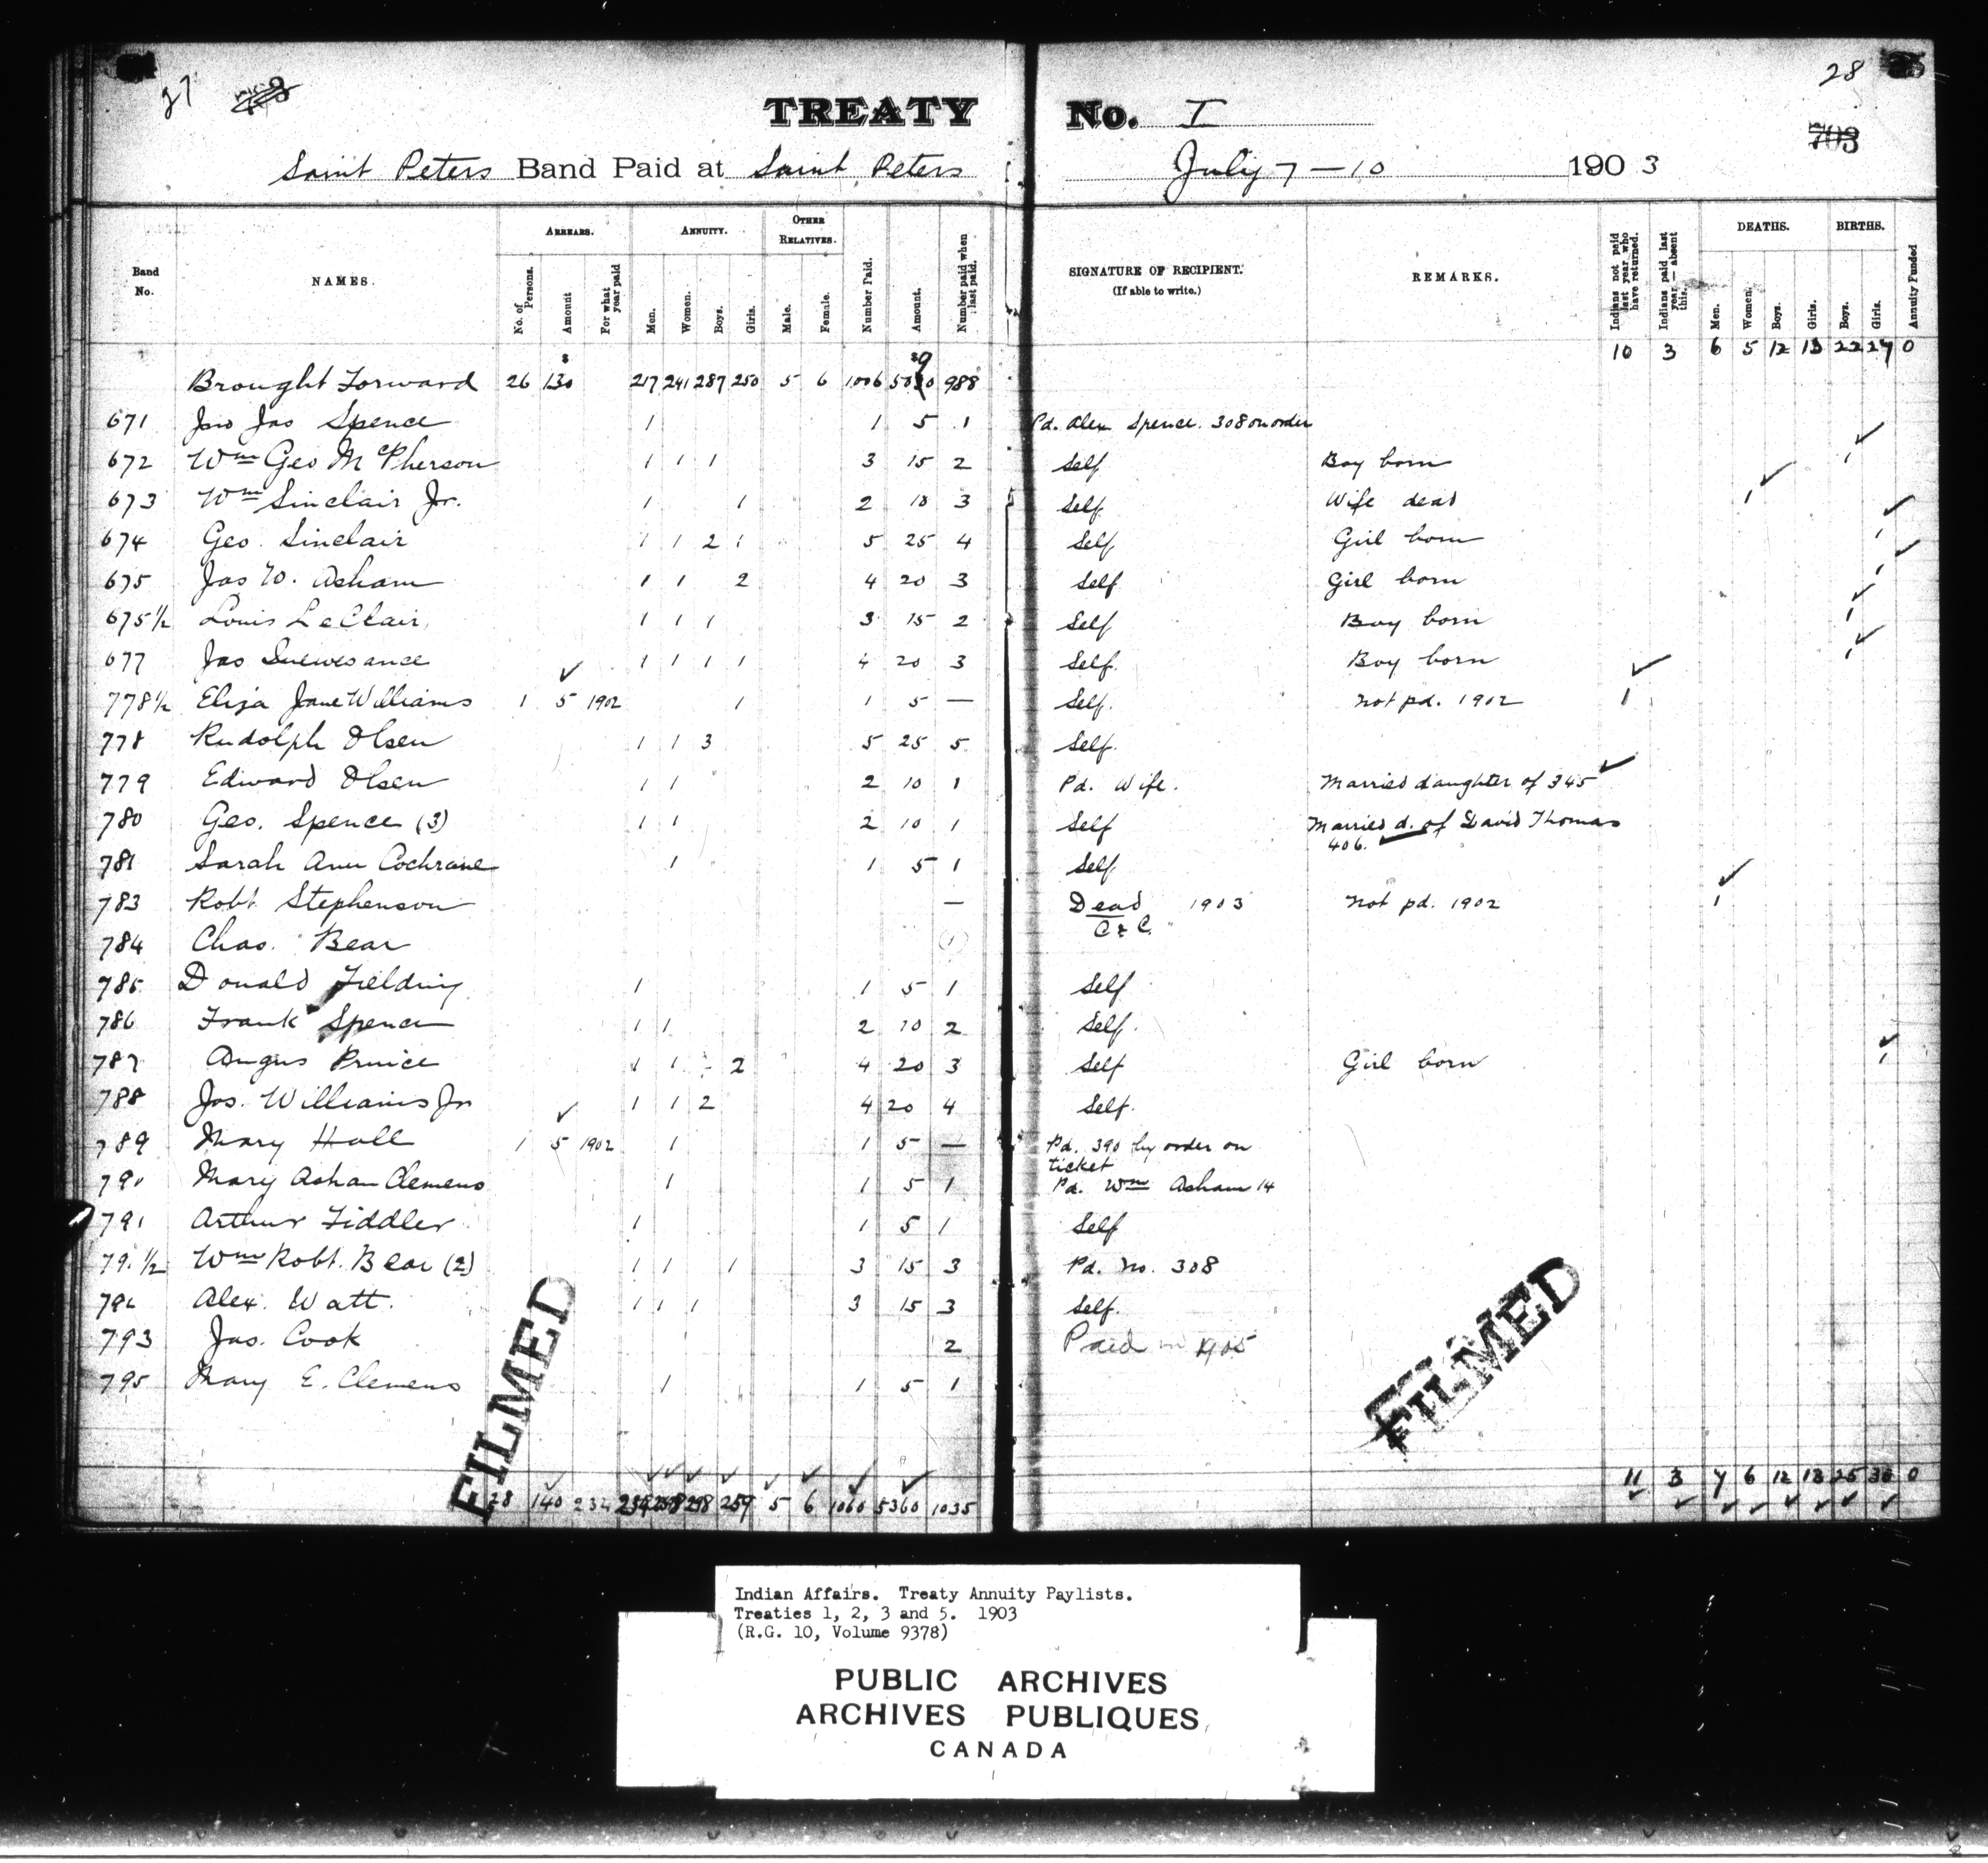 27
28
703
TREATY No. I
Saint Peters Band Paid at Saint Peters July 7 — 10 1903
Band No. NAMES. ARREARS. ANNUITY. OTHER RELATIVES. Number Paid. Amount. Number paid when last paid. SIGNATURE OF RECIPIENT. (If able to write.) REMARKS. Indians not paid last year who have returned. Indians paid last year — absent this. DEATHS. BIRTHS. Annuity Funded
No. of Persons. Amount For what year paid Men. Women. Boys. Girls. Male. Female. Men. Women. Boys. Girls. Boys. Girls.
10 3 6 5 12 13 22 27 0
Brought Forward 26 $130 217 241 287 250 5 6 1006 988
671 Jno Jas Spence 1 1 5 1 Pd. Alex Spence. 308 on order
672 Wm Geo McPherson 1 1 1 3 15 2 Self Boy born 1
673 Wm Sinclair Jr. 1 1 2 10 3 Self Wife dead 1
674 Geo. Sinclair 1 1 2 1 5 25 4 Self Girl born 1
675 Jas W. Asham 1 1 2 4 20 3 Self Girl born 1
675 1/2 Louis LeClair 1 1 1 3 15 2 Self Boy born 1
677 Jas 1 1 1 1 4 20 3 Self. Boy born 1
778 1/2 Eliza Jane Williams 1 5 1902 1 1 5 — Self. Not pd. 1902 1
778 Rudolph Olsen 1 1 3 5 25 5 Self.
779 Edward Olsen 1 1 2 10 1 Pd. Wife. Married daughter of 345
780 Geo. Spence (3) 1 1 2 10 1 Self Married d. of David Thomas
406.
781 Sarah Ann Cochrane 1 1 5 1 Self
783 Robt. Stephenson — Dead 1903 Not pd. 1902 1
C & C.
784 Chas. Bear (1)
785 Donald Fielding 1 1 5 1 Self
786 Frank Spence 1 1 2 10 2 Self.
787 Angus Prince 1 1 2 4 20 3 Self Girl born 1
788 Jos. Williams Jr 1 1 2 4 20 4 Self.
789 Mary Hall 1 5 1902 1 1 5 — Pd. 390 by order on
ticket
790 Mary Asham Clemens 1 1 5 1 Pd. Wm Asham 14
791 Arthur Fiddler 1 1 5 1 Self
791 1/2 Wm Robt. Bear (2) 1 1 1 3 15 3 Pd. No. 308
792 Alex. Watt. 1 1 1 3 15 3 Self.
793 Jas. Cook 2 Paid in 1905
795 Mary E. Clemens 1 1 5 1
FILMED
FILMED
28 140 234 298 259 5 6 1060 5360 1035 11 3 7 6 12 13 25 30 0
Indian Affairs. Treaty Annuity Paylists.
Treaties 1, 2, 3 and 5. 1903
(R.G. 10, Volume 9378)
PUBLIC ARCHIVES
ARCHIVES PUBLIQUES
CANADA